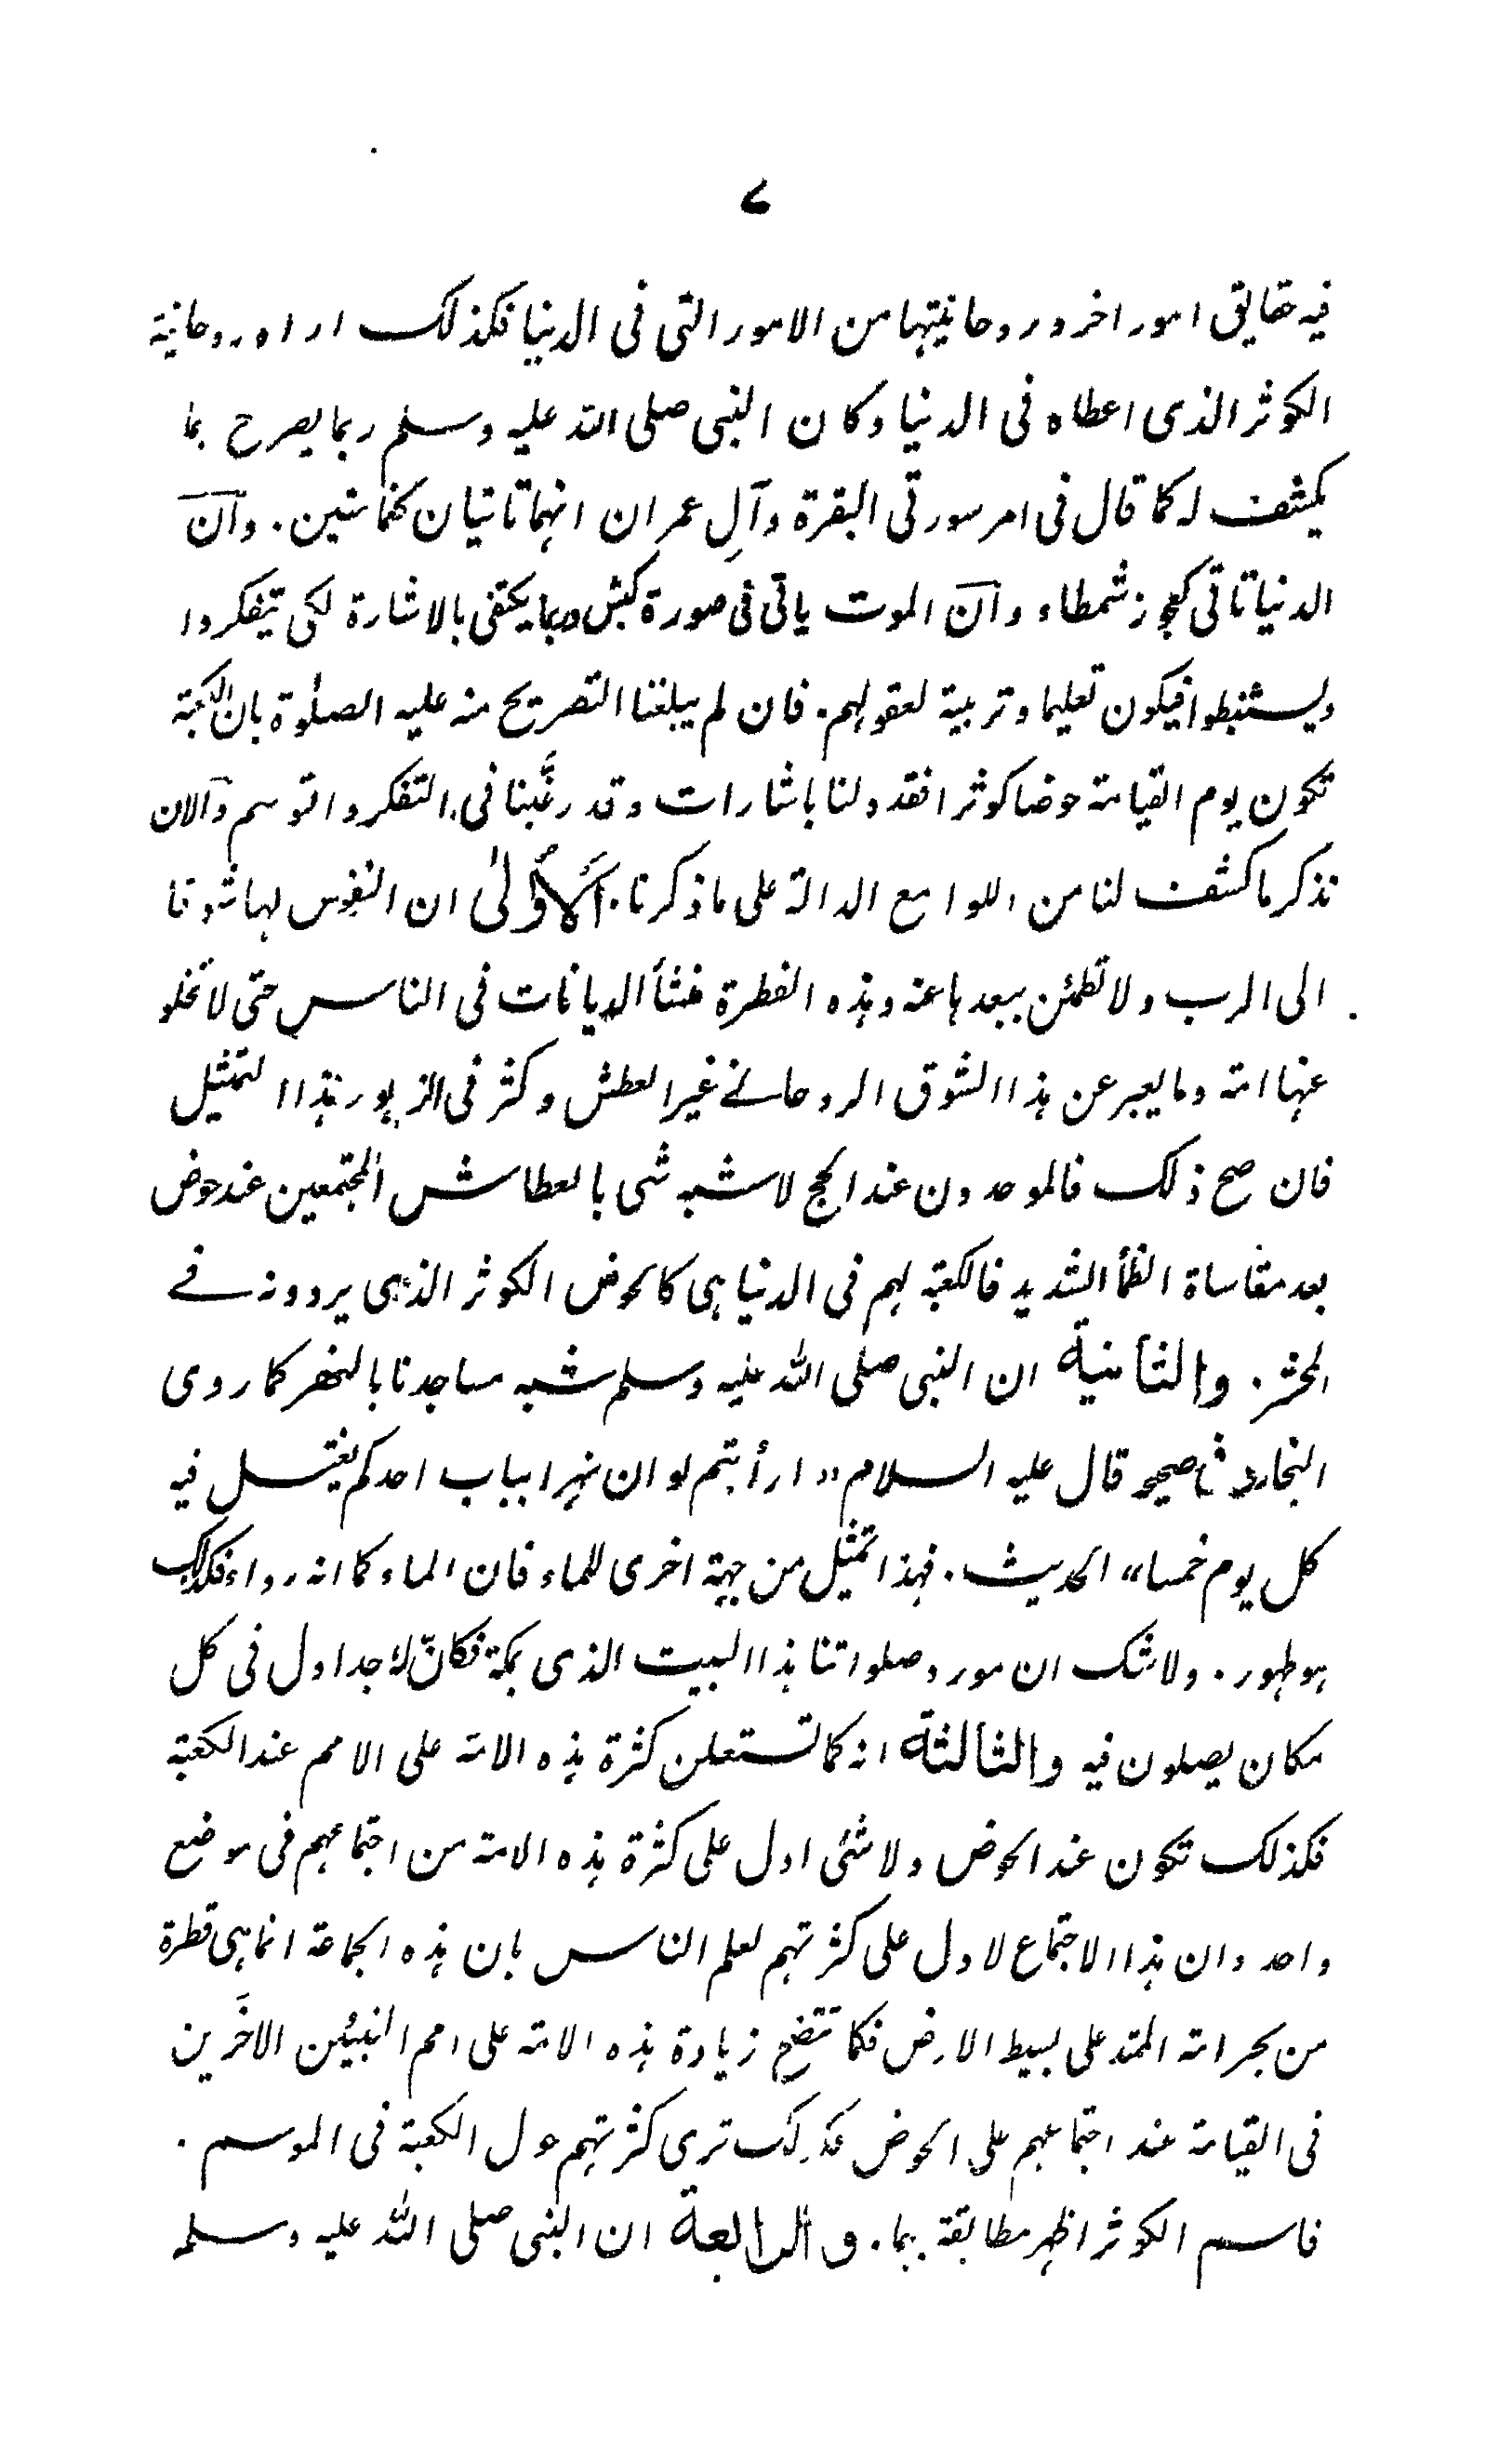 ۷
فيه حقايق امور اخر وروحانيتها من الامور التى فى الدنيا فكذلك اراه روحانية
الكوثر الذى اعطاه فى الدنيا وكان النبى صلى الله عليه وسلم ربما يصرح بما
يكشف له كما قال فى امر سورتى البقرة وآلِ عمران انهما تاتيان كغمامتين. وان
الدنيا تاتى كعجوز شمطاء وان الموت ياتى فى صورة كبش وربما يكتفى بالاشارة لكى يتفكروا
وليستنبطوا فيكون تعليما وتربية لعقولهم. فان لم يبلغنا التصريح منه عليه الصلوٰة بان الكعبة
تكون يوم القيامة حوضا كوثرا فقد دلنا باشارات وقد رغَّبنا فى التفكر والتوسم والان
نذكر ما كشف لنا من اللوامع الدالة على ما ذكرنا. اَلاُوْلىٰ ان النفوس لها شوقا
الى الرب ولا تطمئن ببعدها عنه وهذه الفطرة منشأ الديانات فى الناس حتى لا تخلو
عنها امة وما يعبر عن هذا الشوق الروحانے غير العطش وكثر فى الزبور هذا التمثيل
فان صح ذلك فالموحدون عند الحج لاشبه شى بالعطاش المجتمعين عند حوض
بعد مقاساة الظمأ الشديد فالكعبة لهم فى الدنيا هى كالحوض الكوثر الذى يردونه فے
الحشر. والثانية ان النبى صلى الله عليه وسلم شبه مساجدنا بالنهر كما روى
البخارى فى صحيحه قال عليه السلام "ارأيتم لو ان نهرا بباب احدكم يغتسل فيه
كل يوم خمسا" الحديث. فهذا تمثيل من جهة اخرى للماء فان الماء كما انه رواء فكذلك
هو طهور. ولا شك ان مورد صلواتنا هذا البيت الذى بمكة فكانّ له جداول فى كل
مكان يصلون فيه والثالثة انه كما تستعلن كثرة هذه الامة على الامم عند الكعبة
فكذلك تكون عند الحوض ولا شئى ادل على كثرة هذه الامة من اجتماعهم فى موضع
واحد وان هذا الاجتماع لادل على كثرتهم لعلم الناس بان هذه الجماعة انما هى قطرة
من بحر امة الممتد على بسيط الارض فكما تتضح زيادة هذه الامة على امم النبيئن الاخَرين
فى القيامة عند اجتماعهم على الحوض فكذلك ترى كثرتهم حول الكعبة فى الموسم.
فاسم الكوثر اظهر مطابقة بهما. والرابعة ان النبى صلى الله عليه وسلم